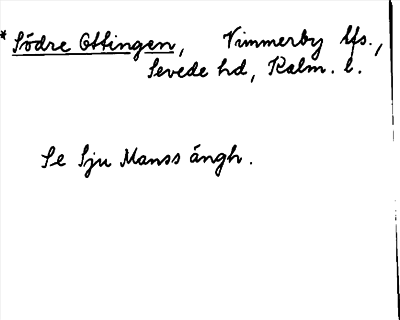 * Södre Ottingen, Vimmerby lfs.,
Sevede hd, Kalm. l.
Se Sju Manss ängh.